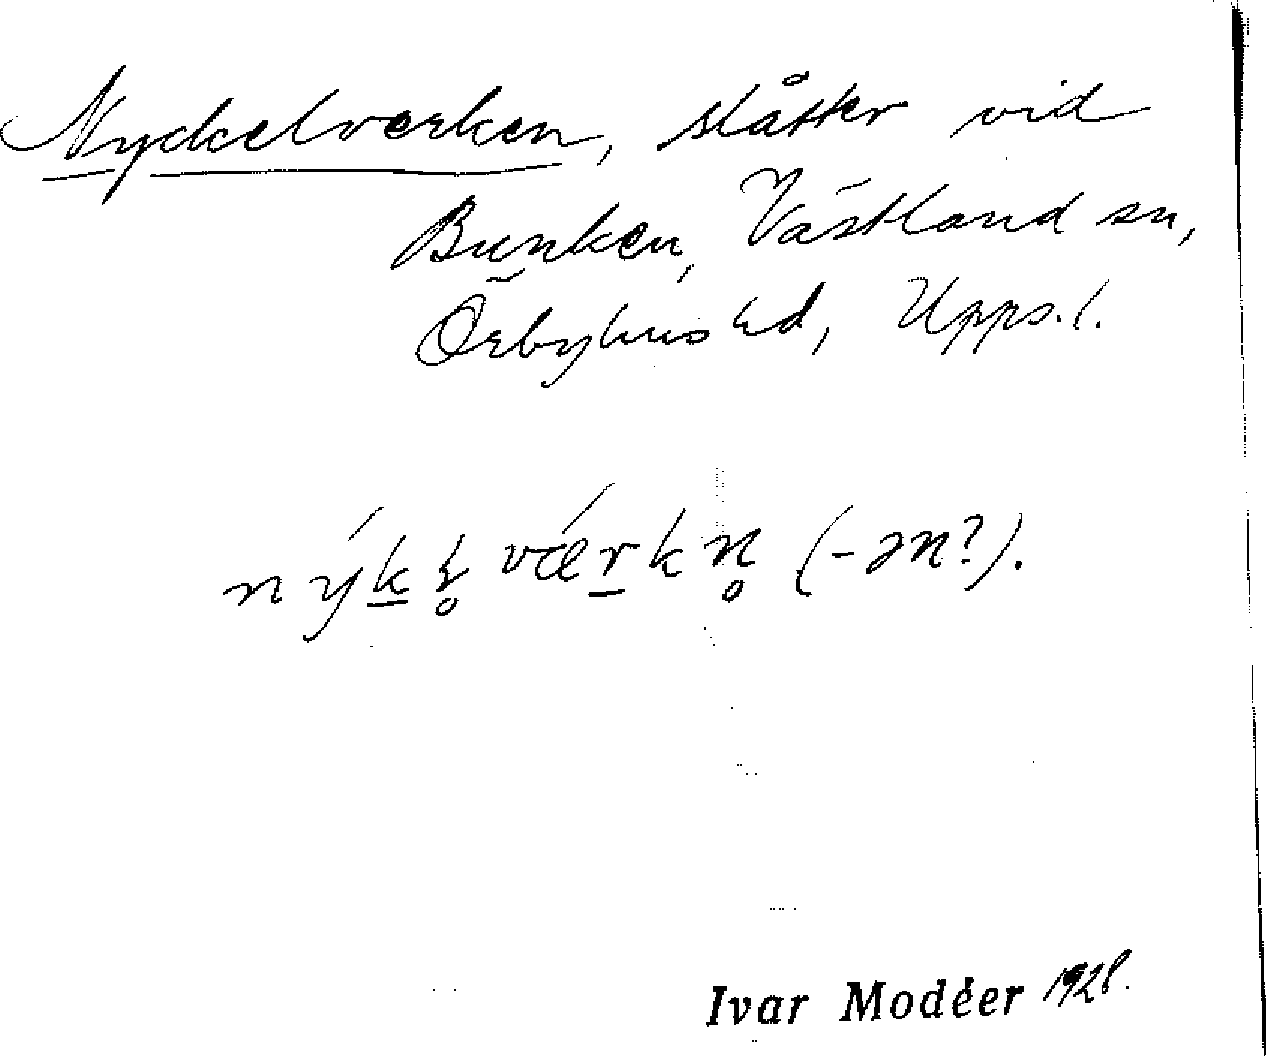 Nyckelverken, slåtter vid
Bunken, Västland sn,
Örbyhus hd, Upps. l.
ný̱kl̥ vǽrkn̥ (-ən?).
Ivar Modéer 1928.